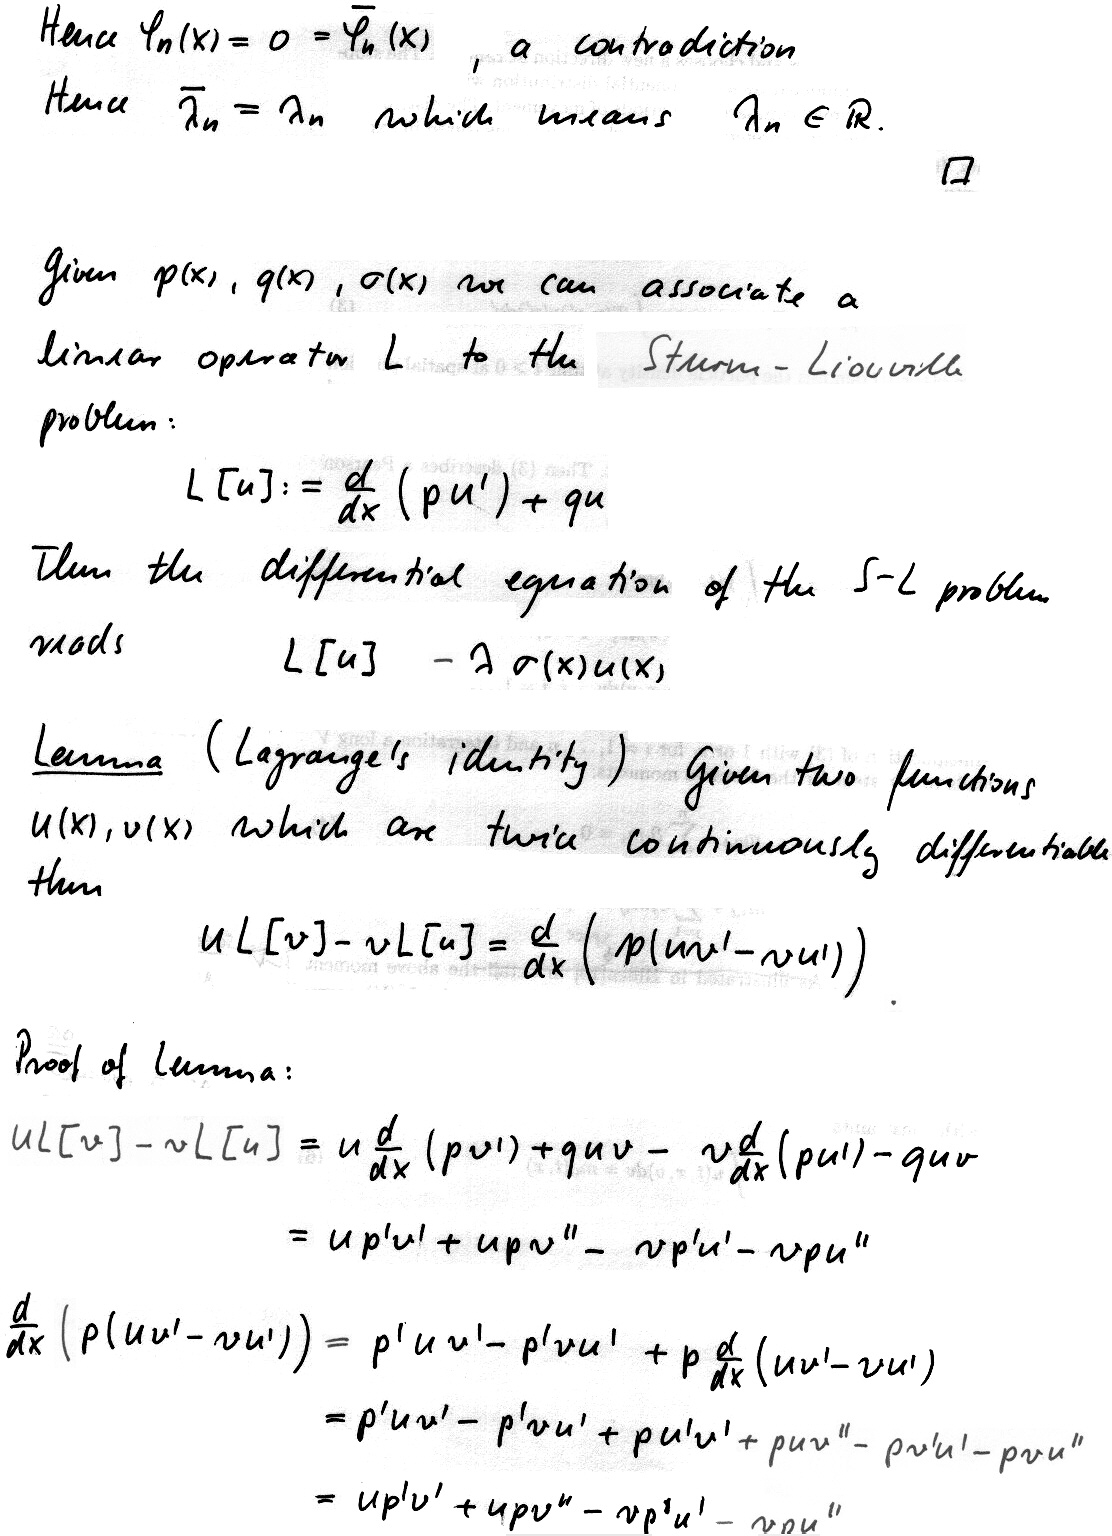 Hence φₙ(x) = 0 = φ̄ₙ(x) , a contradiction
Hence λ̄ₙ = λₙ which means λₙ ∈ ℝ.
□
Given p(x), q(x), σ(x) we can associate a
linear operator L to the Sturm-Liouville
problem:
L[u] := d/dx (pu') + qu
Then the differential equation of the S-L problem
reads L[u] - λ σ(x)u(x)
Lemma (Lagrange's identity) Given two functions
u(x), v(x) which are twice continuously differentiable
then
uL[v] - vL[u] = d/dx ( p(uv' - vu') ) .
Proof of Lemma:
uL[v] - vL[u] = u d/dx (pv') + quv - v d/dx (pu') - quv
= up'v' + upv'' - vp'u' - vpu''
d/dx (p(uv' - vu')) = p'uv' - p'vu' + p d/dx (uv' - vu')
= p'uv' - p'vu' + pu'v' + puv'' - pv'u' - pvu''
= up'v' + upv'' - vp'u' - vpu''